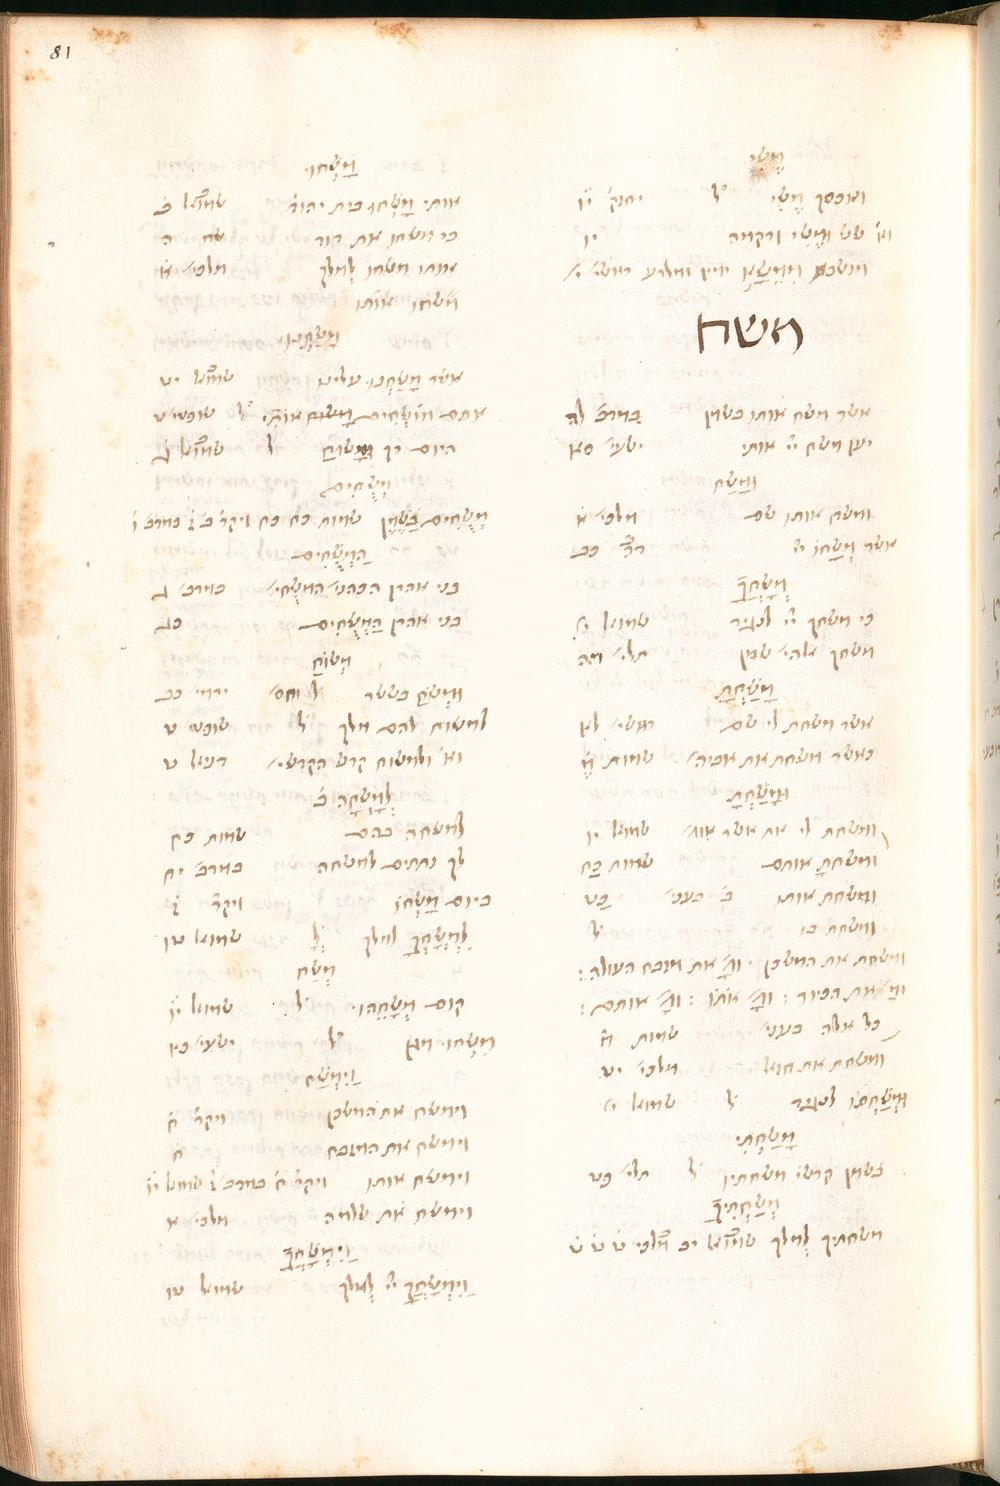 81
מֶשִׁי
ואכסך מֶשִׁי ל׳ יחזק׳ יו
שש ומשי ורקמה יו
משח
אשר משח אותו בשמן במדב׳ לה
יען משח יי אותי ישעי׳ סא
וּמָשַׁח
ומשח אותו שם מלכי׳ א
אשר מְשָׁחוֹ יי דה׳ כב
מְשָׁחֲךָ
כי משחך יי לנגיד שמואל י
משחך אלהי׳ שמן תלי׳ מה
מָשַׁחְתָּ
אשר משחת לי שם בראשי׳ לא
כאשר משחת את אביה׳ שמות מ
וּמָשַׁחְתָּ
ומשחת לי את אשר אומ׳ שמואל יו
ומשחת אותם שמות כח
ומשחת אותו ב׳ בעני׳ כט
ומשחת בו ל׳
ומשחת את המשכן ׃ ומ׳ את מזבח העולה ׃
ומ׳ את הכיור ׃ ומ׳ אותו ׃ ומ׳ אותם ׃
כל אלה בעני׳ שמות מ
ומשחת את חזאל מלכי׳ יט
וּמְשַׁחְתּוֹ לנגיד ל׳ שמואל ט
מָשַׁחְתִּי
בשמן קדשי משחתיו ל׳ תלי׳ פט
מְשַׁחְתִּיךָ
משחתיך למלך שמואל יב מלכי׳ ט ט ט
מָשְׁחוּ
אותי מָשְׁחוּ בית יהוד׳ שמואל ב
כי משחו את דוד שם ה
אותו משחו למלך מלכי׳ א
משחו אותו
מָשַׁחְנוּ
אשר מָשַׁחְנוּ עלינו שמואל יט
אתם מושחים אותי ל׳ שופטי׳ ט
היום רך ומָשׁוּחַ ל׳ שמואל ג
מְשֻׁחִים
מְשֻׁחִים בַּשֶּׁמֶן
הַמְּשֻׁחִים
בני אהרן הכהני׳ המשחי׳ במדב׳ ג
בני אהרן הַמְּשֻׁחִים
מָשׁוֹחַ
ומשח בששר ל׳ וחס׳ ירמי׳ כב
למשוח להם מלך ל׳ שופטי׳ ט
ולמשוח קדש הקדשי׳ דניאל ט
לְמָשְׁחָה ב׳
למשחה בהם שמות כט
לך נתתים למשחה במדב׳ יח
ביום מָשְׁחוֹ ויקר׳ ו
לִמְשָׁחֳךָ למלך ל׳ שמואל טו
מְשַׁח
קום מְשָׁחֵהוּ ל׳ שמואל יו
מִשְׁחוּ מגן ל׳ ישעי׳ כא
וַיִּמְשַׁח
וימשח את המשכן ויקר׳ ח
וימשח את המזבח ח
וימשח אותו ויקר׳ ח במדב׳ ז שמואל יו
וימשח את שלמה מלכי׳ א
וַיִּמְשָׁחֲךָ
וַיִּמְשָׁחֲךָ יי למלך שמואל טו